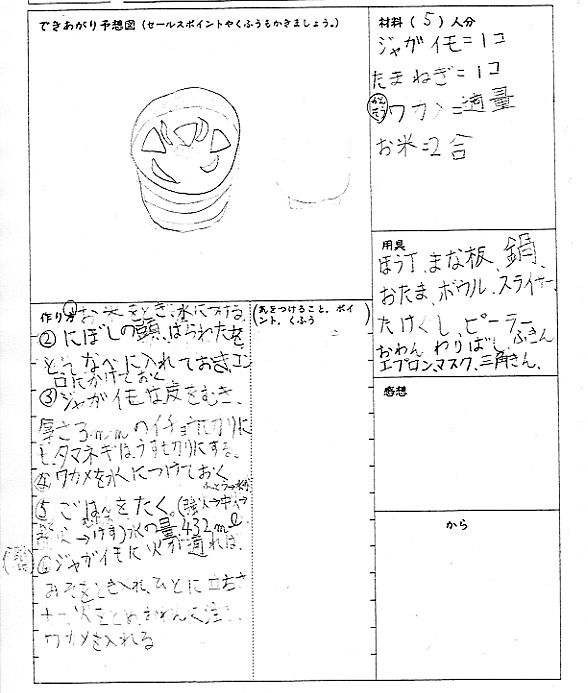 できあがり予想図（セールスポイントやくふうもかきましょう。）
材料（5）人分
ジャガイモ=1コ
たまねぎ=1コ
ワカメ=適量
お米=2合
用具
ほう丁、まな板、鍋、
おたま、ボウル、スライサー、
たけぐし、ピーラー
おわん わりばし、ふきん
エプロン、マスク、三角きん、
作り方
①お米をとぎ、水につける
②にぼしの頭、はらわたを
とってなべに入れておき、コン
ロにかけておく
③ジャガイモは皮をむき、
厚さ3mmのイチョウ切りに
し、タマネギはうす切りにする。
④ワカメを水につけておく
⑤ごはんをたく。(強火→中火→
弱火→けす)水の量432mℓ
⑥ジャガイモに火が通れば、
みそをとき入れ、ひとに立ちさ
せ、火をとめ、おわんに注ぎ、
ワカメを入れる
(気をつけること、ポイ
ント、くふう)
感想
から